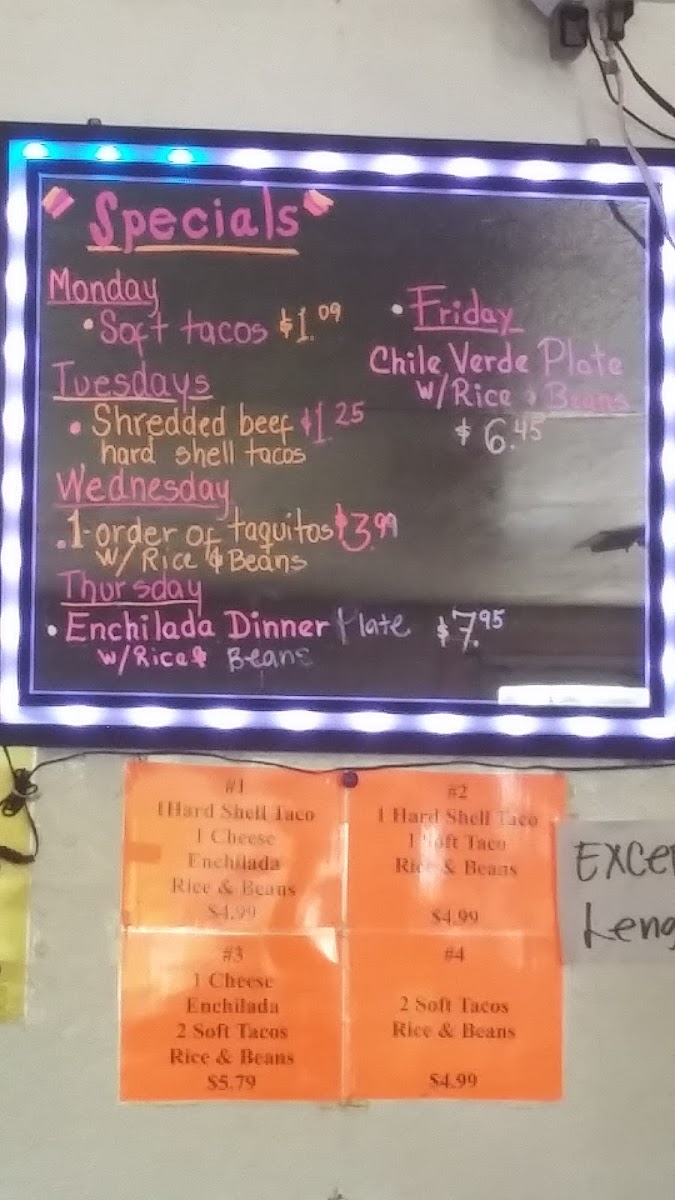 Specials
Monday
• Soft tacos $1.09
Tuesdays
• Shredded beef $1.25
hard shell tacos
Wednesday
. 1-order of taquitos $3.99
w/ Rice & Beans
Thursday
• Enchilada Dinner Plate $7.95
w/Rice & Beans
• Friday
Chile Verde Plate
w/Rice & Beans
$6.45
#1
1Hard Shell Taco
1 Cheese
Enchilada
Rice & Beans
$4.99
#2
1 Hard Shell Taco
1 Soft Taco
Rice & Beans
$4.99
#3
1 Cheese
Enchilada
2 Soft Tacos
Rice & Beans
$5.79
#4
2 Soft Tacos
Rice & Beans
$4.99